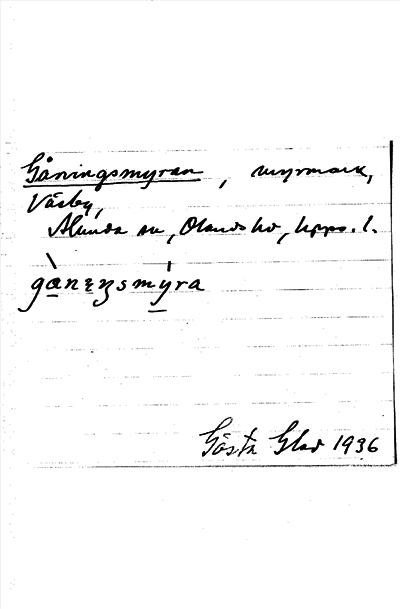 Gåningsmyran, myrmark,
Väsby,
Alunda sn, Olands hd, Upps. l.
gånɪŋsmýra
Gösta Glad 1936